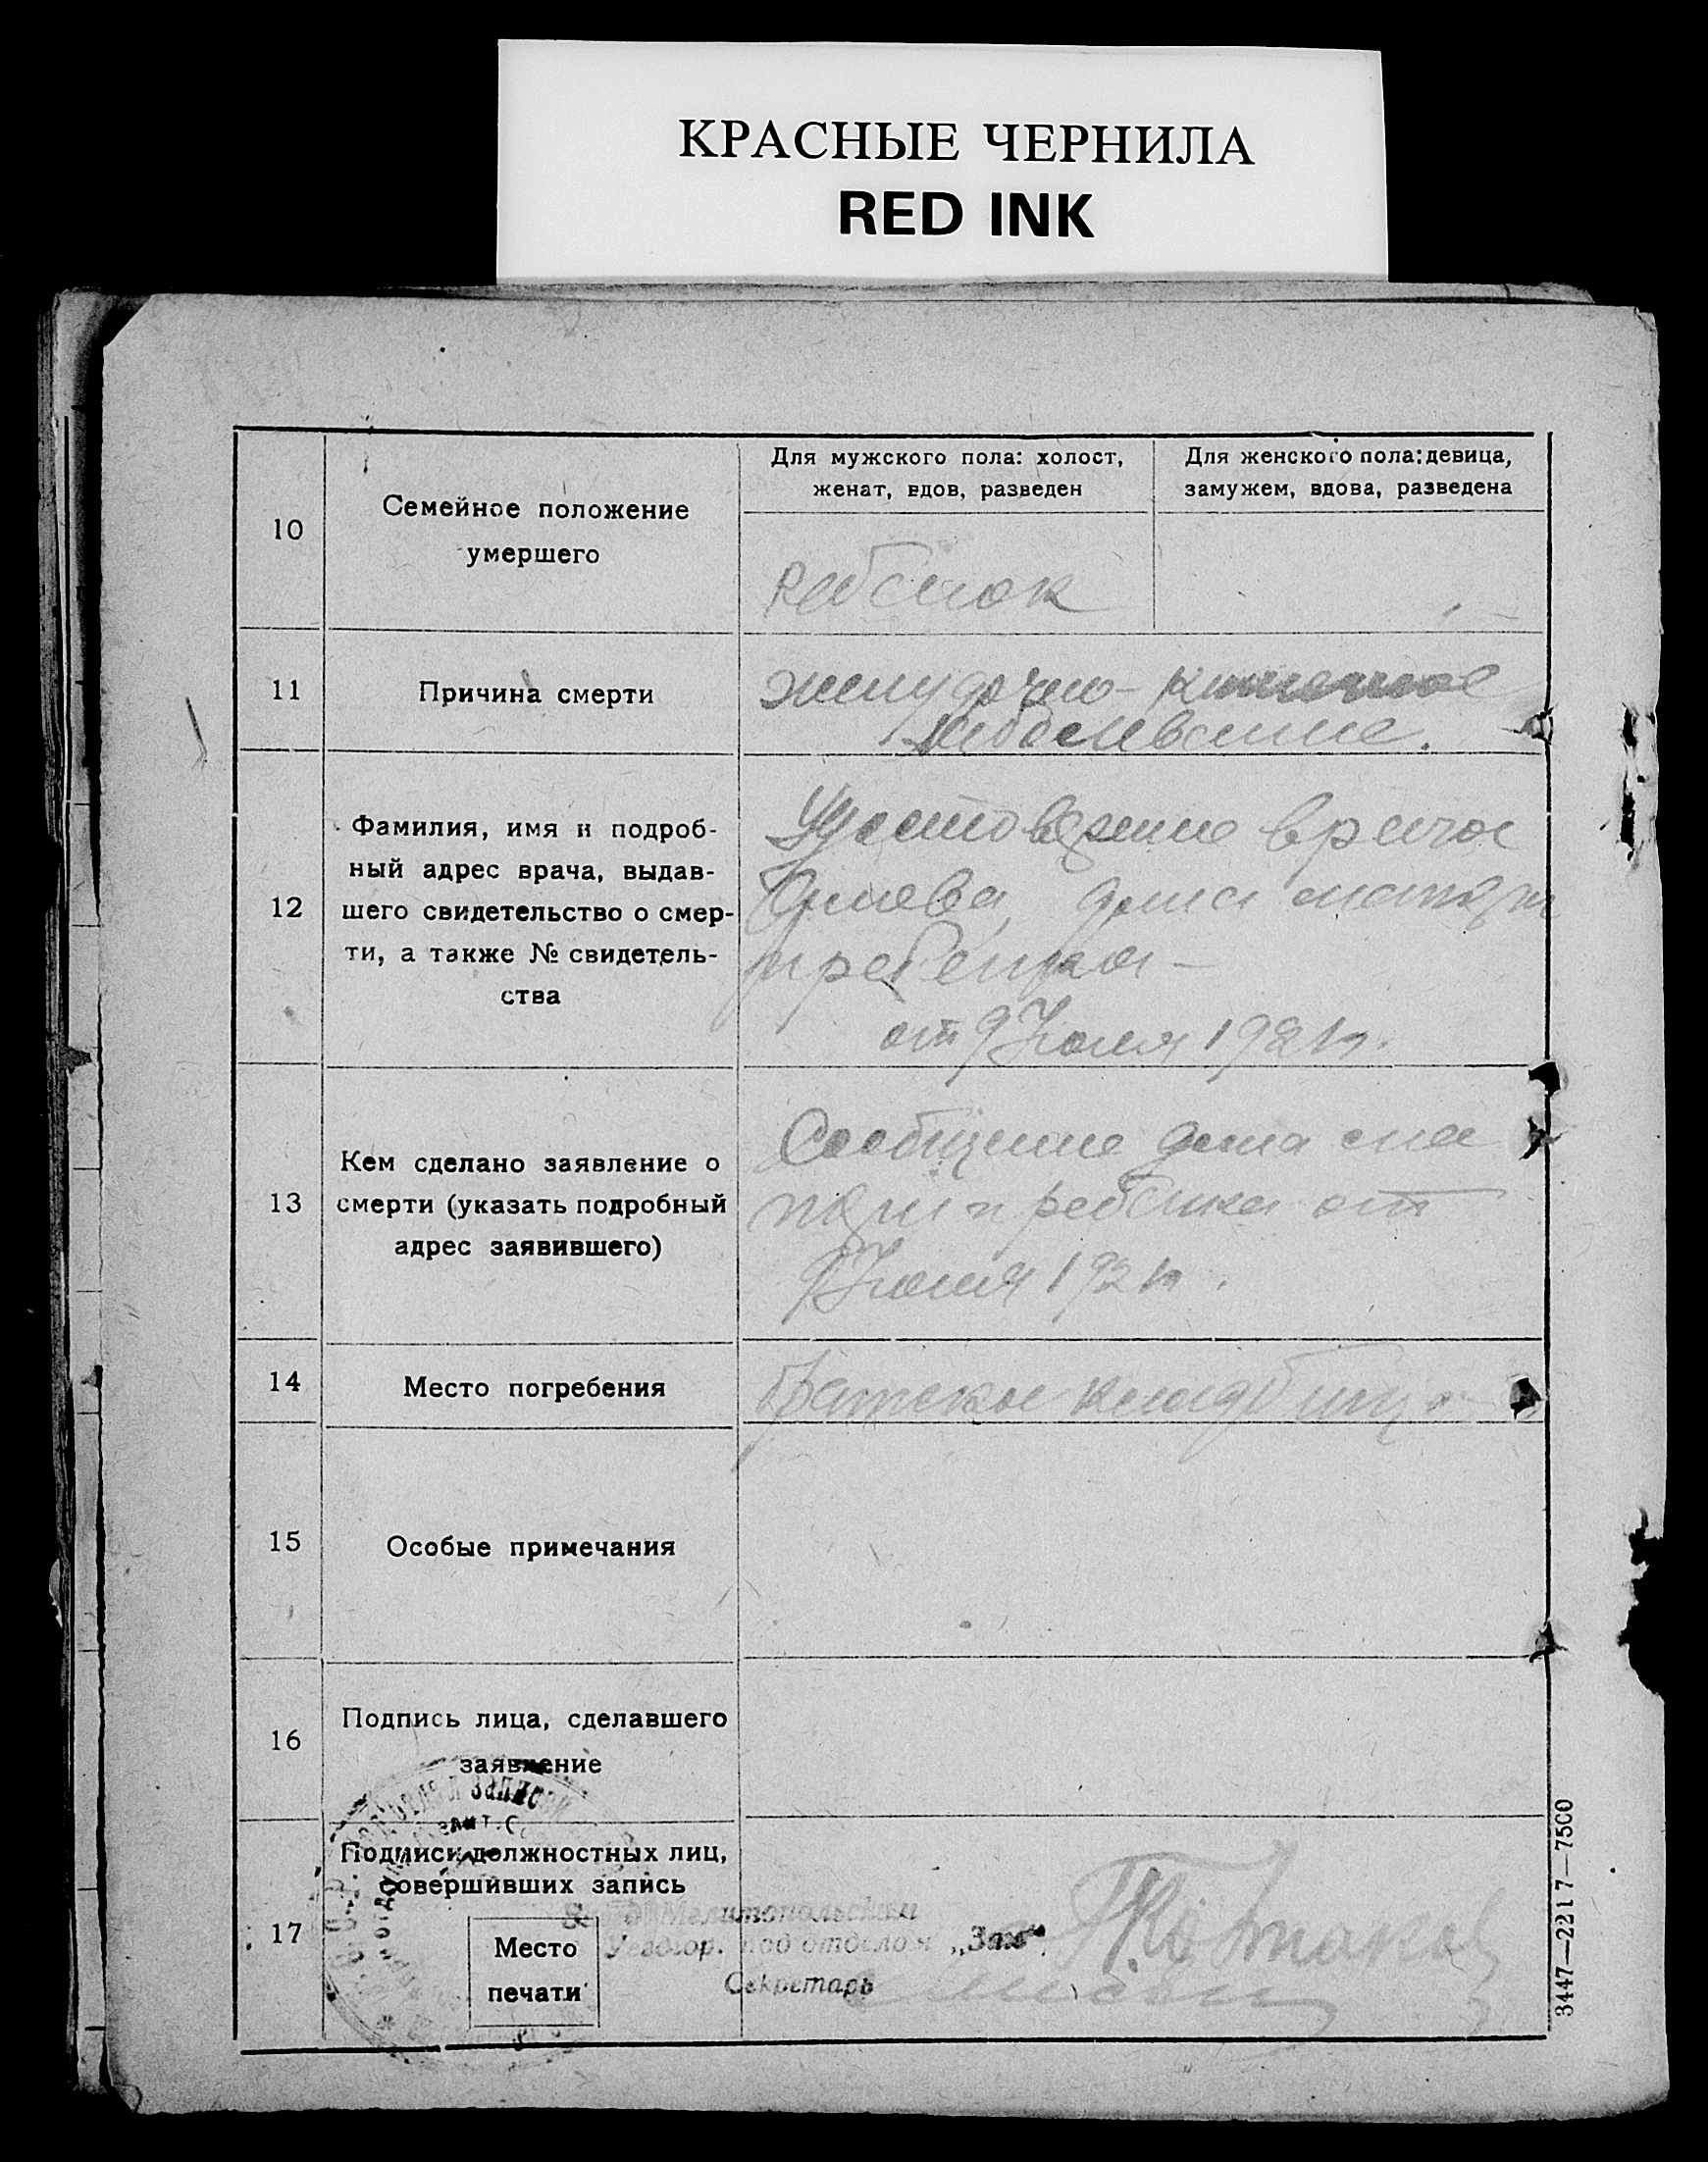 КРАСНЫЕ ЧЕРНИЛА
RED INK
10
Семейное положение
умершего
Для мужского пола: холост,
женат, вдов, разведен
Для женского пола: девица,
замужем, вдова, разведена
ребенок
11
Причина смерти
желудочно-кишечное
заболевание.
12
Фамилия, имя и подроб-
ный адрес врача, выдав-
шего свидетельство о смер-
ти, а также № свидетель-
ства
Удостоверение врача
дома матери
и ребенка-
от 9 Июля 1921 г.
13
Кем сделано заявление о
смерти (указать подробный
адрес заявившего)
Сообщение дома ма
тери и ребенка от
9 Июля 1921 г.
14
Место погребения
Братское кладбище
15
Особые примечания
16
Подпись лица, сделавшего
заявление
17
Подписи должностных лиц,
совершивших запись
Место
печати
Мелитопольским
Уездгор. под отделом „Загс“
Секретарь
3447—2217—7500